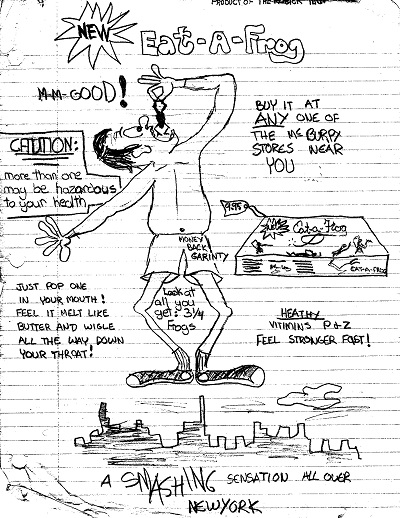 PRODUCT OF THE
NEW
Eat-A-Frog
M-M-GOOD!
BUY IT AT
ANY ONE OF
THE Mc BURPY
STORES NEAR
YOU
CAUTION:
more than one
may be hazardous
to your health
4.95
Eat-a-Frog
EAT-A-FROG
MONEY
BACK
GARINTY
JUST POP ONE
IN YOUR MOUTH!
FEEL IT MELT LIKE
BUTTER AND WIGLE
ALL THE WAY DOWN
YOUR THROAT!
Look at
all you
get: 3 1/4
Frogs
HEATHY
VITIMINS P+Z
FEEL STRONGER FAST!
A SMASHING SENSATION ALL OVER
NEWYORK